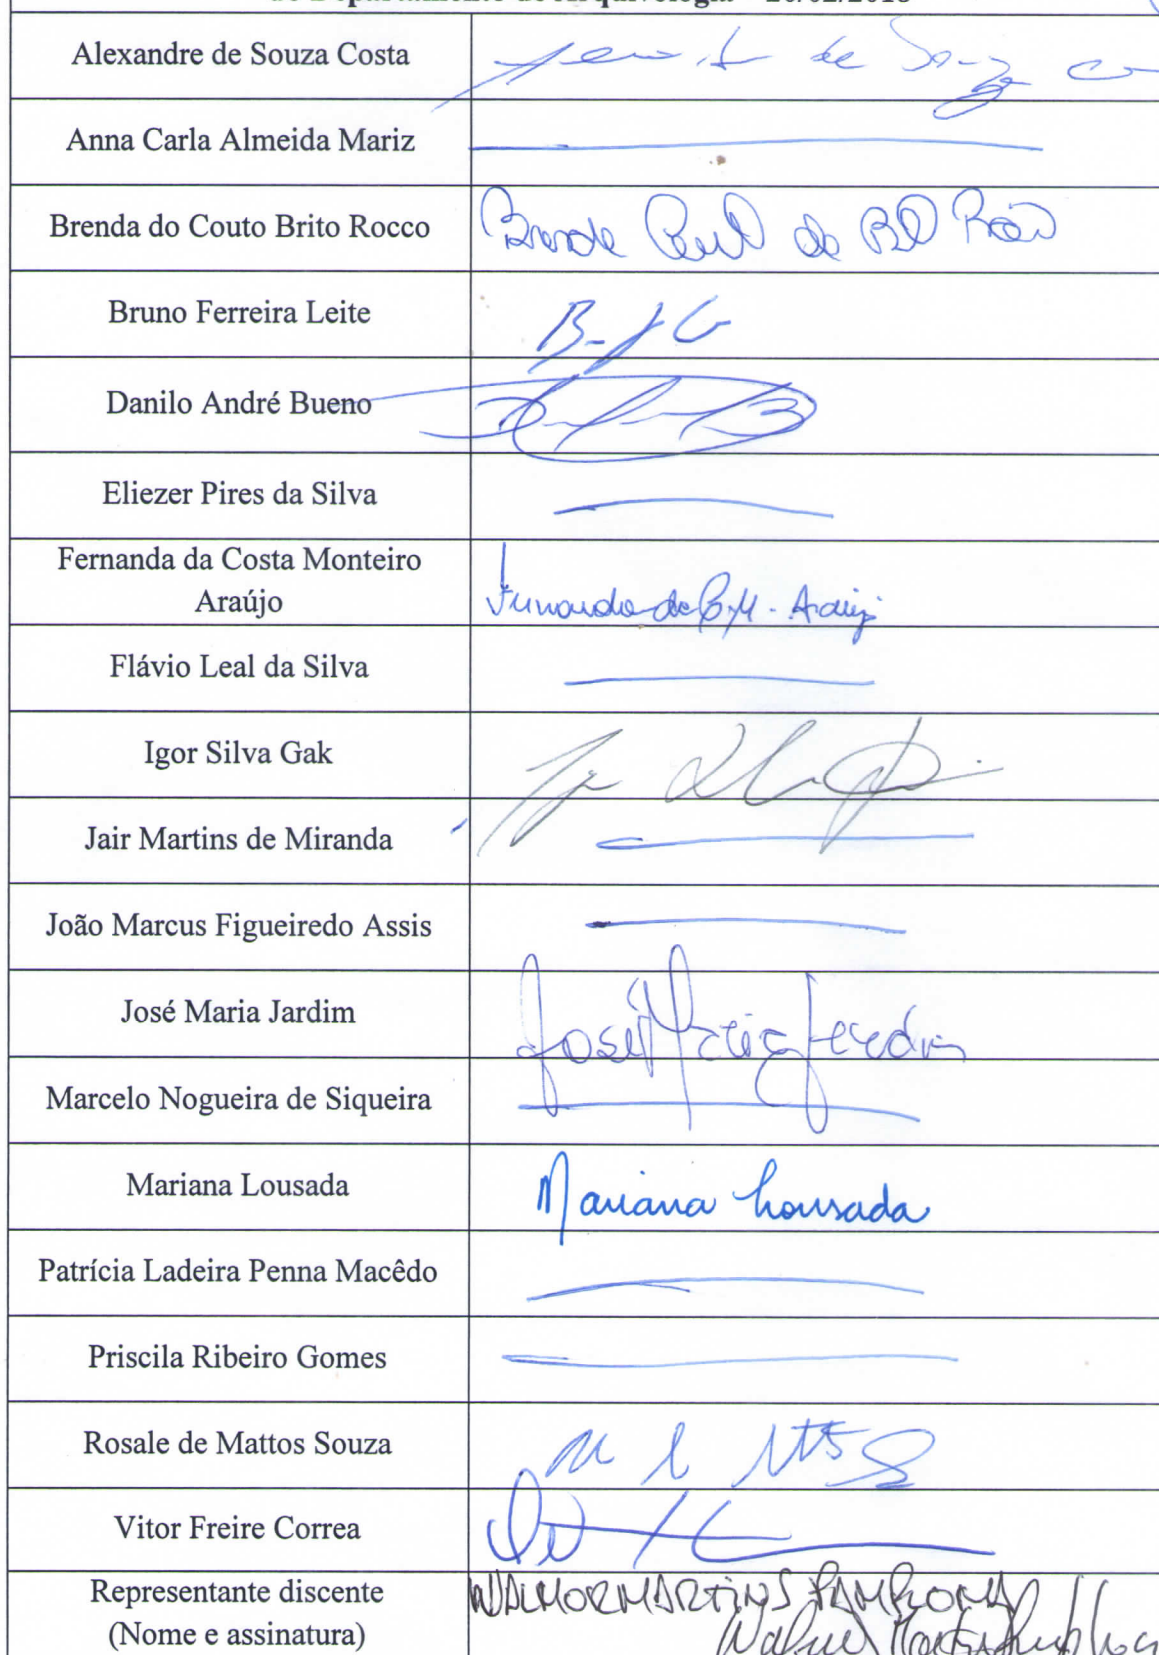 do Departamento de Arquivologia – 26/02/2018
Alexandre de Souza Costa
de Souza
Anna Carla Almeida Mariz
Brenda do Couto Brito Rocco
Brenda
Bruno Ferreira Leite
Danilo André Bueno
Eliezer Pires da Silva
Fernanda da Costa Monteiro
Araújo
Fernanda de C. M. Araújo
Flávio Leal da Silva
Igor Silva Gak
Jair Martins de Miranda
João Marcus Figueiredo Assis
José Maria Jardim
José Maria Jardim
Marcelo Nogueira de Siqueira
Mariana Lousada
Mariana Lousada
Patrícia Ladeira Penna Macêdo
Priscila Ribeiro Gomes
Rosale de Mattos Souza
Vitor Freire Correa
Representante discente
(Nome e assinatura)
WALMOR MARTINS PAMPLONA